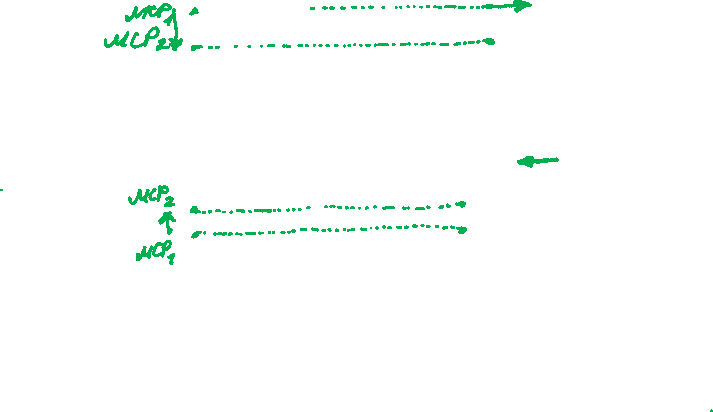 MCP1
MCP2
MCP2
MCP1